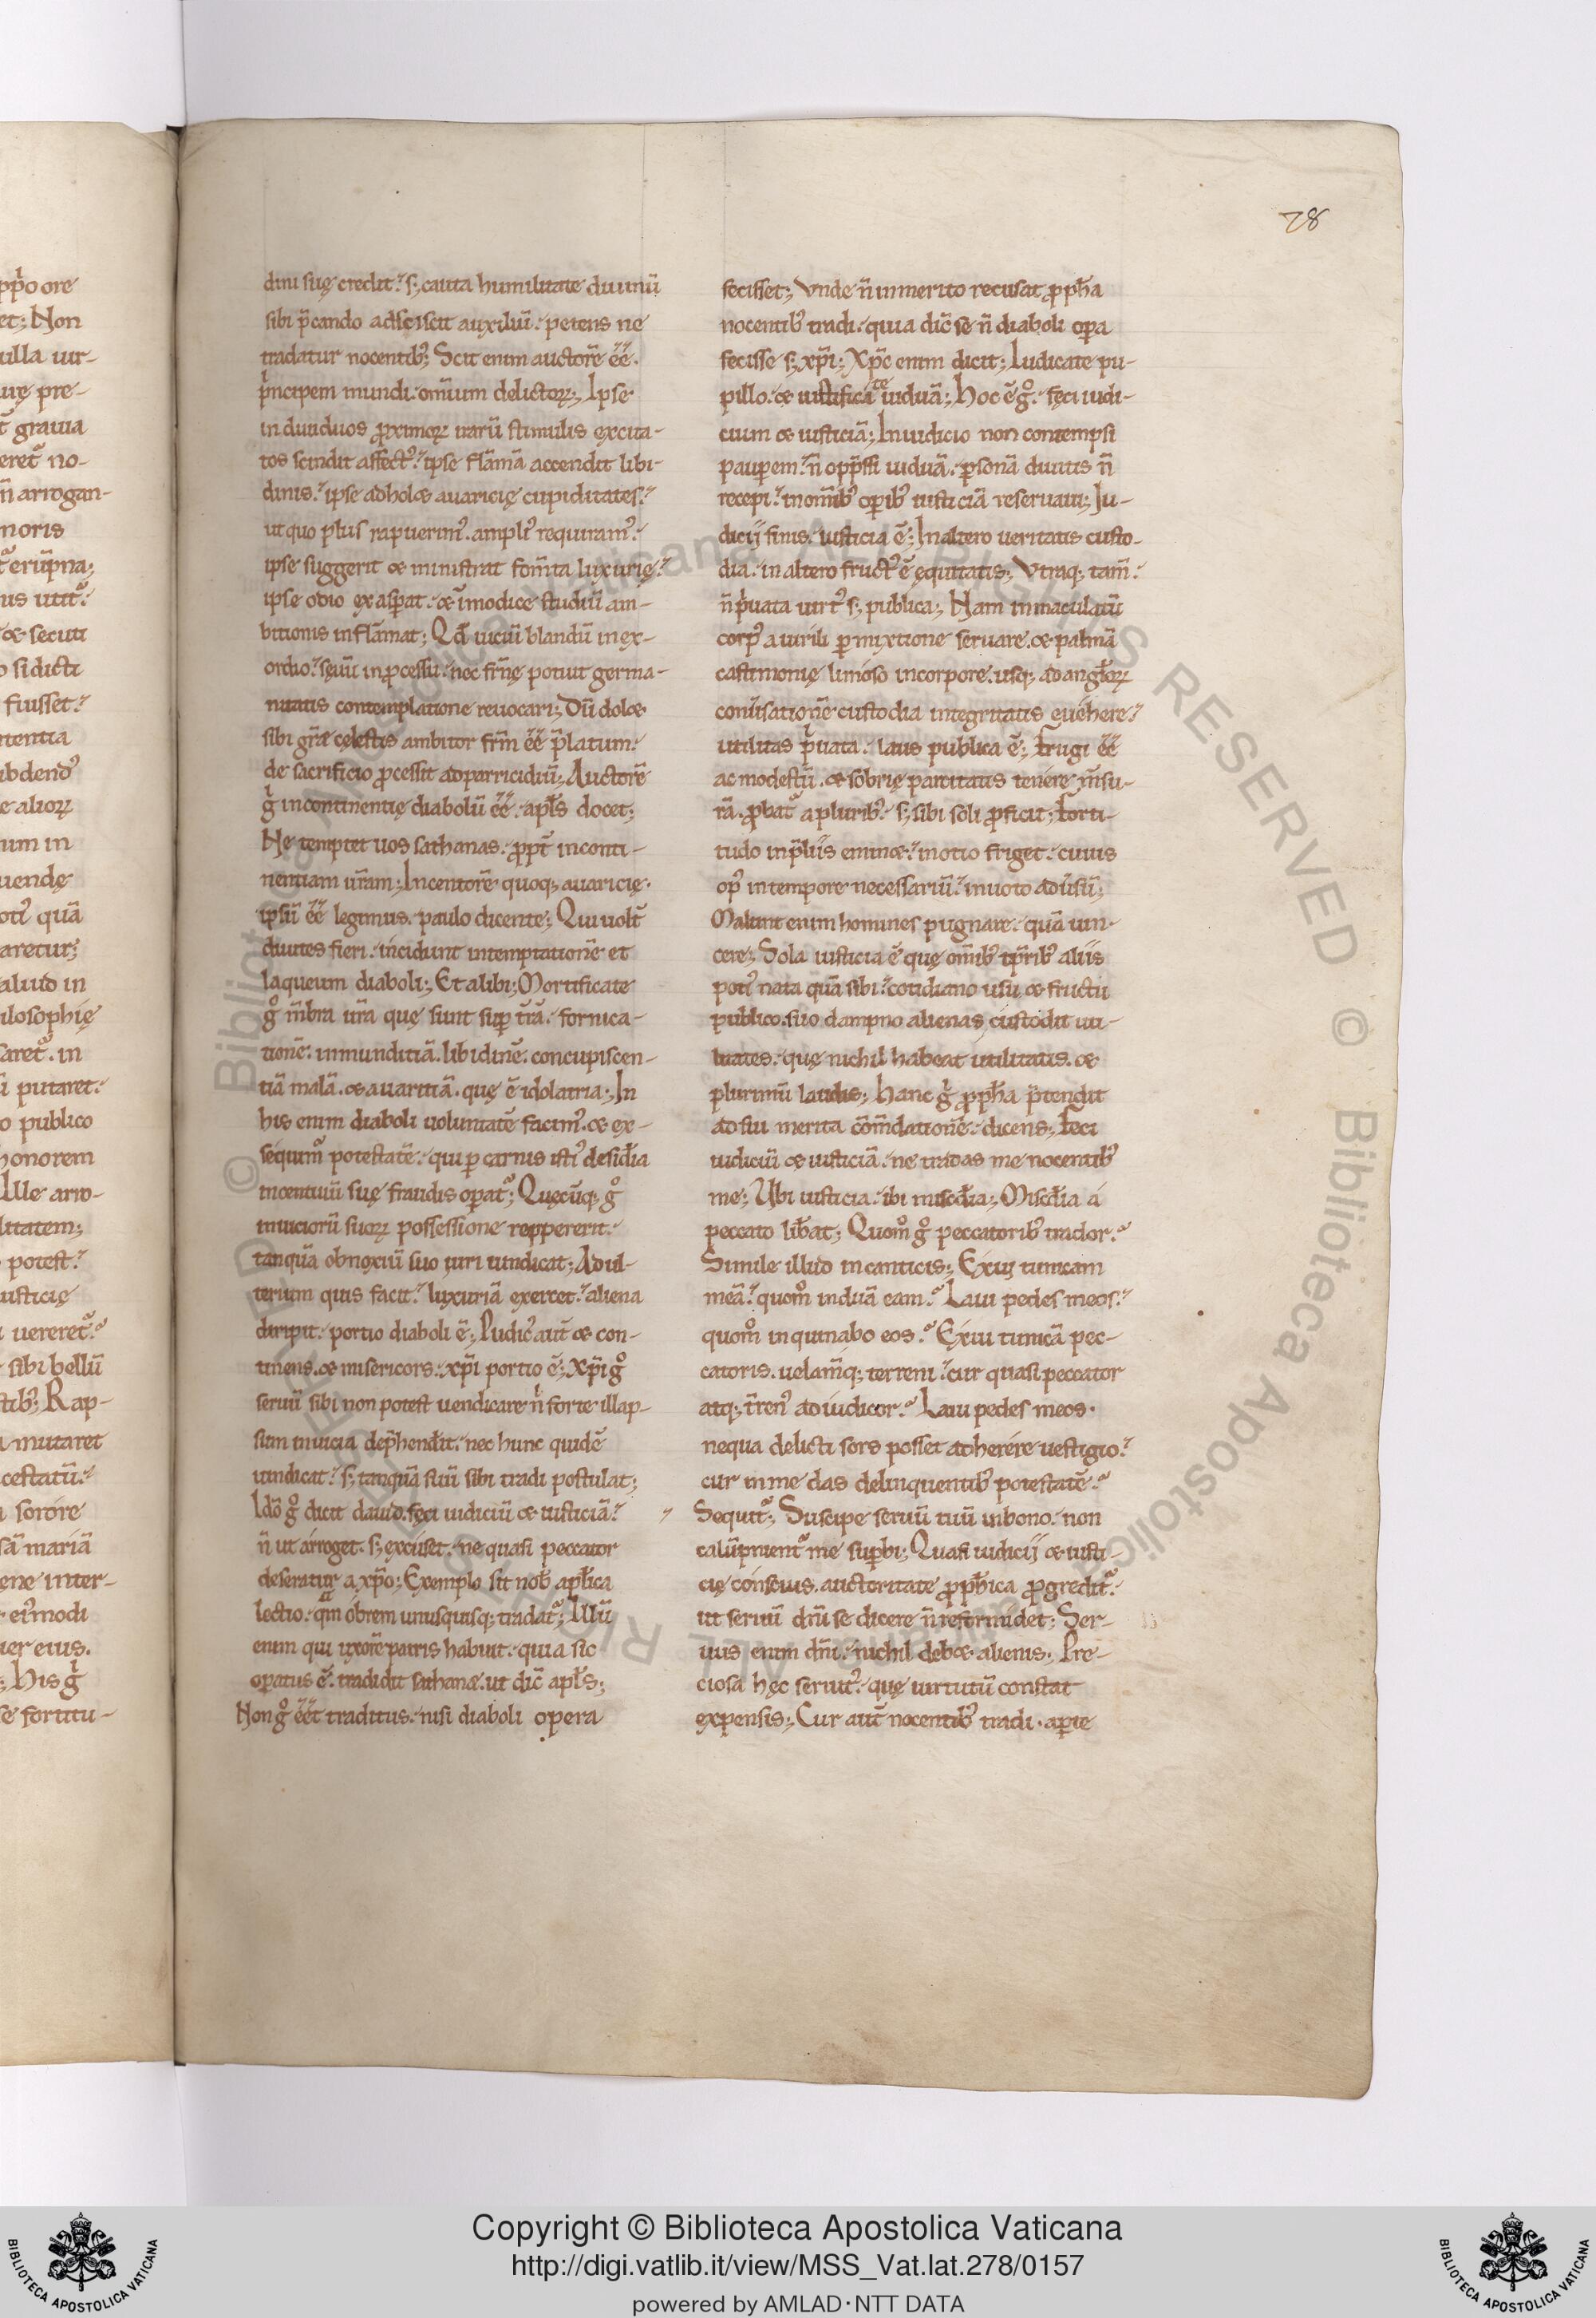 ppͥo ore
et; Non
uilla uir-
uię pre-
t̄ grauia
eret̄ no-
n̄ arrogan-
moris
erūpna;
us utit᷑.
⁊ secuti
o si dicti
fuisset.
ntentia
ibdend᷒
e alioꝝ
um in
uendę
oti᷒ quā
aretur;
aliud in
ilosophię
saret᷑. in
putaret.
o publico
honorem
Ille arro-
litatem;
potest.
iusticię
uereret᷑.
sibi bellū
stib᷒; Rap-
a mutaret
cestatū.
sorore
sā mariā
ene inter-
ei᷒modi
er eius.
; His gͥ
se fortitu-
dini suę credit. s; cauta humilitate diuinū
sibi p̄cando adsciscit auxiliū. petens ne
tradatur nocentib᷒; Scit enim auctorē ēē.
pͥncipem mundi. omīum delictoꝝ; Ipse
indiuiduos ꝓximoꝝ irarū stimulis excita-
tos scindit affect᷒. ipse flāmā accendit libi-
dinis. ipse adholet auaricię cupiditates.
ut quo plus rapuerim᷒. ampli᷒ requiram᷒.
ipse suggerit et ministrat fom̄ta luxurię.
ipse odio exasꝑat. et īmodice studiū am-
bitionis inflāmat; Qd̄ uiciū blandū in ex-
ordio. sęuū in ꝓcessu. nec fr̄nę potuit germa-
nitatis contemplatione reuocari; Dū dolet
sibi gr̄æ celestis ambitor fr̄m ēē p̄latum.
de sacrificio ꝓcessit ad parricidiū; Auctorē
gͥ incontinentię diabolū ēē. apl̄s docet;
Ne temptet uos sathanas. ꝓpt̄ inconti-
nentiam ur̄am; Incentorē quoq; auaricię.
ipsū ēē legimus. paulo dicente; Qui uolt̄
diuites fieri. incidunt in temptationē et
laqueum diaboli; Et alibi; Mortificate
gͦ m̄bra ur̄a quę sunt suꝑ tr̄ā. fornica-
tionē. inmunditiā. libidinē. concupiscen-
tiā malā. et auaritiā. quę ē idolatria; In
his enim diaboli uoluntatē facim᷒. et ex-
sequimͦ potestatē. qui ꝑ carnis isti᷒ desid̄ia
incentiuū suę fraudis oꝑat᷑; Quęcūq; gͦ
inuicioꝝ suoꝝ possessione reppererit.
tanquā obnoxiū suo iuri uindicat; Adul-
terium quis facit. luxuriā exercet. aliena
diripit. portio diaboli ē; Pudic᷒ aut̄ et con-
tinens. et misericors. xp̄i portio ē; Xp̄i gͦ
seruū sibi non potest uendicare nͥ forte illap-
sum in uicia dep̄hendit. nec hunc quidē
uindicat. s; tanquā suū sibi tradi postulat;
Ido gͦ dicit dauid. feci iudiciū et iusticiā.
n̄ ut arroget. s; excuset. ne quasi peccator
deseratur a xp̄o; Exemplo sit nob᷒ apl̄ica
lectio. qm̄ ob rem unusquisq; tradat᷑; Illū
enim qui uxorē patris habuit. quia sic
oꝑatus ē. tradidit sathanæ. ut dic̄ apl̄s;
Non gͦ ēēt traditus. nisi diaboli opera
fecisset; Unde n̄ inmerito recusat ꝓph̄a
nocentib᷒ tradi. quia dic̄ se n̄ diaboli oꝑa
fecisse s; xp̄i; Xp̄c enim dicit; Iudicate pu-
pillo. et iustificate uiduā; Hoc ē gͦ. feci iudi-
cium et iusticiā; In iudicio non contempsi
pauꝑem. n̄ opp̄ssi uiduā. ꝑsonā diuitis n̄
recepi. in om̄ib᷒ oꝑib᷒ iusticiā reseruaui; Iu-
dicij finis. iusticia ē; In altero ueritatis custo-
dia. in altero fruct᷒ ē ęquitatis; Vtraq; tam̄.
n̄ pͥuata uirt᷒ s; publica; Nam inmaculatū
corp᷒ a uirili ꝑmixtione seruare. et palmā
castimonię limoso in corpore. usq; ad angl̄oꝝ
conu̅sationē custodia integritatis euehere.
utilitas pͥuata. laus publica ē; Frugi ēē
ac modestū. et sobrię parcitatis tenere m̄su-
rā. ꝓbat᷑ a plurib᷒. s; sibi soli ꝓficit; Forti-
tudo in p̄liis eminet. in otio friget. cuius
op᷒ in tempore necessariū. in uoto ad usū;
Malunt enim homines pugnare. quā uin-
cere; Sola iusticia ē quę om̄ib᷒ tp̄rib᷒ aliis
poti᷒ nata quā sibi. cotidiano usu et fructu
publico. suo dampno alienas custodit uti-
litates. quę nichil habeat utilitatis. et
plurimū laudis; Hanc gͥ ꝓph̄a p̄tendit
ad sui merita cōm̄dationē. dicens; Feci
iudiciū et iusticiā. ne tradas me nocentib᷒
me; Ubi iusticia. ibi misc̄dia; Misc̄dia a
peccato lib̄at; Quomͦ gͦ peccatorib᷒ trador.
Simile illud in canticis; Exui tunicam
meā. quomͦ induā eam. Laui pedes meos.
quomͦ inquinabo eos. Exui tunicā pec-
catoris. uelam̄q; terreni. cur quasi peccator
atq; t̄ren᷒ adiudicor. Laui pedes meos.
nequa delicti sors posset adherere uestigio.
cur in me das delinquentib᷒ potestatē.
Sequit᷑; Suscipe seruū tuū in bono. non
calūpnient᷑ me suꝑbi; Quasi iudicij et iusti-
cię conscius. auctoritate ꝓph̄ica ꝓgredit᷑.
ut seruū dn̄i se dicere n̄ reformidet; Ser-
uus enim dn̄i. nichil debet alienis; Pre-
ciosa hęc seruit᷒. quę uirtutū constat
expensis; Cur aut̄ nocentib᷒ tradi. aꝑte
28
© Biblioteca Apostolica Vaticana ALL RIGHTS RESERVED
Copyright © Biblioteca Apostolica Vaticana
http://digi.vatlib.it/view/MSS_Vat.lat.278/0157
powered by AMLAD·NTT DATA
BIBLIOTECA APOSTOLICA VATICANA
BIBLIOTECA APOSTOLICA VATICANA